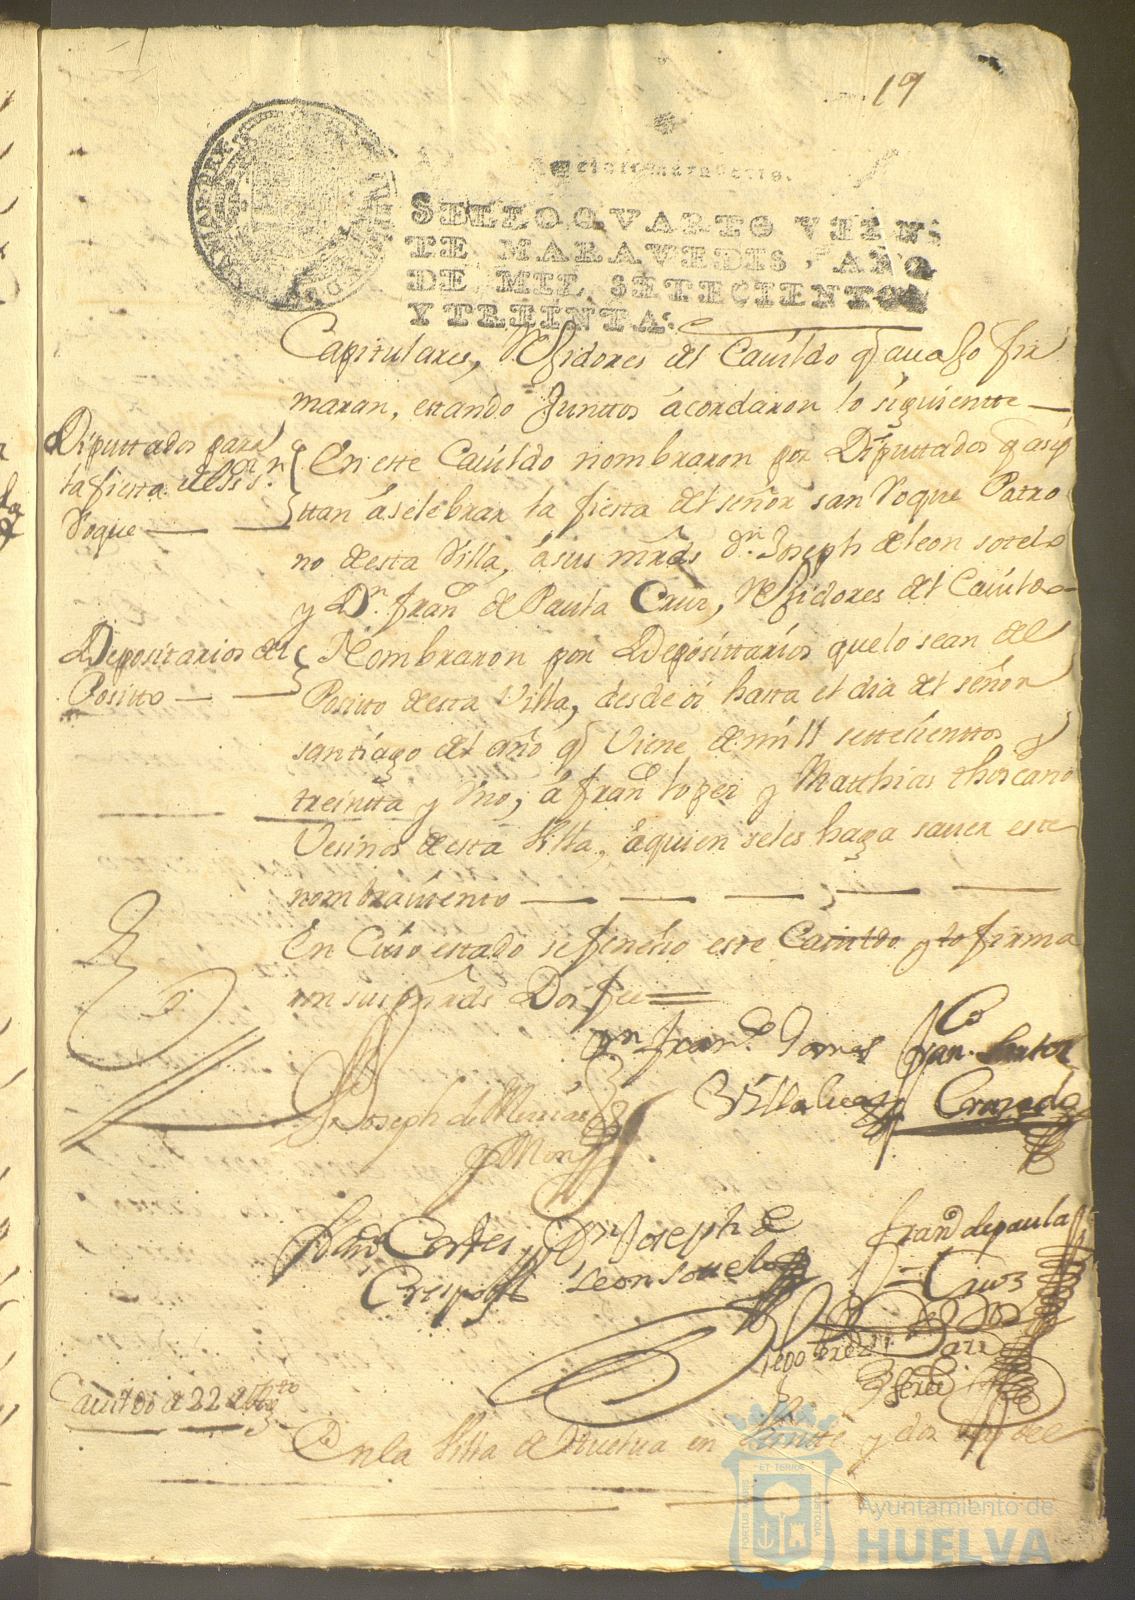 19
SELLO QVARTO VEINTE
DE MARAVEDIS, AÑO
DE MIL SETECIENTOS
Y TREINTA.
Capitulares, Rexidores del Cauildo q auajo fir
maran, estando Junttos acordaron lo siguientte
Diputtados para
la fiesta del Sr. Sn.
Roque
En este Cauildo nombraron por Diputtados q asis
ttan a selebrar la fiesta del señor san Roque Patro
no desta Villa, a sus mrds dn. Joseph de leon sotelo
y Dn. Franco de Paula Cruz, Rexidores del Cauildo
Depositarios del
Positto
Nombraron por Deposittarios que lo sean del
Positto desta Villa, desde oi hasta el dia del señor
santiago del año q Viene de mill settesienttos
treintta y Uno, a Franco lopez y Matthias thoscano
Vesinos desta Villa, a quien seles haga sauer este
nombramiento
En Cuio estado se fenesio este Cauildo y lo firma
ron sus mrds Doi fee
Dn Franco Gomes
Villalua
Fran. Santos
Cruzado
Joseph de
y Mon
Cortes
Crespo
Dn Joseph de
leon sotelo
Franco de paula
Cruz
Diego
Cauildo de 22 de Agto
En la Villa de Huelua en Veinte y dos dias del
PORTUS MARIS ET TERRAE CUSTODIA
Ayuntamiento de
HUELVA